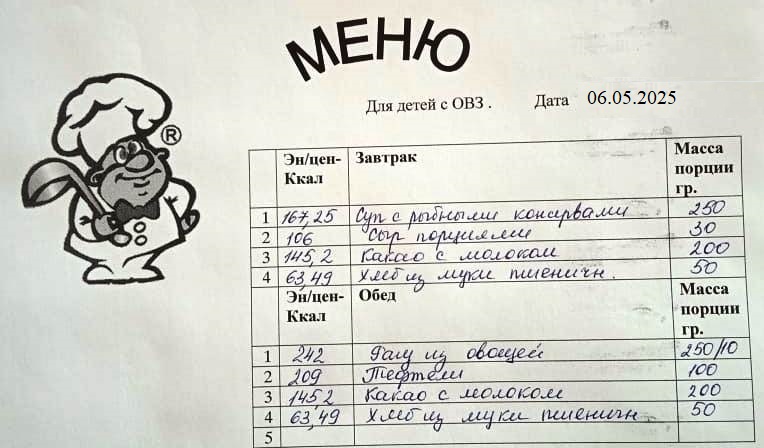 МЕНЮ
Для детей с ОВЗ . Дата 06.05.2025
®
Эн/цен-Ккал Завтрак Масса порции гр.
1 167,25 Суп с рыбными консервами 250
2 106 Сыр порциями 30
3 145,2 Какао с молоком 200
4 63,49 Хлеб из муки пшеничн. 50
Эн/цен-Ккал Обед Масса порции гр.
1 242 Рагу из овощей 250/10
2 209 Тефтели 100
3 145,2 Какао с молоком 200
4 63,49 Хлеб из муки пшеничн. 50
5